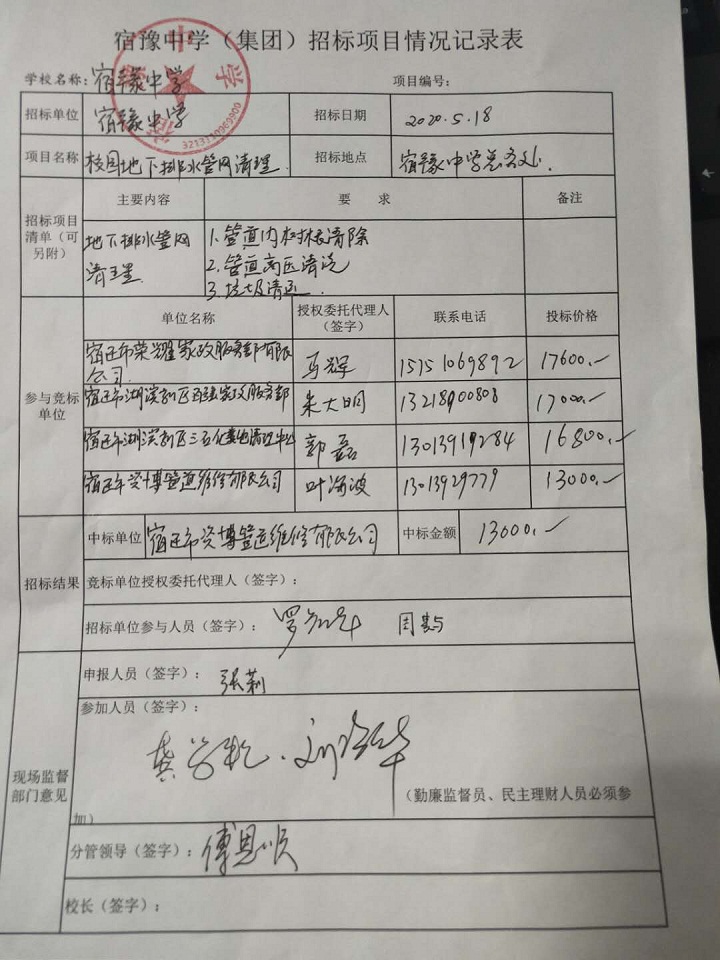 宿豫中学（集团）招标项目情况记录表
学校名称：宿豫中学 项目编号：
招标单位 宿豫中学 招标日期 2020.5.18
项目名称 校园地下排水管网清理. 招标地点 宿豫中学总务处.
招标项目清单（可另附） 主要内容 要 求 备注
地下排水管网清理 1.管道内树根清除
2.管道高压清洗
3.垃圾清运.
参与竞标单位 单位名称 授权委托代理人（签字） 联系电话 投标价格
宿迁市荣耀家政服务部有限公司. 马辉 15151069892 17600.-
宿迁市湖滨新区百强家政服务部 朱大明 13218900808 17000.-
宿迁市湖滨新区三石化粪池清理中心 郭磊 13013919284 16800.-
宿迁市 博管道维修有限公司 叶海波 13013929779 13000.-
招标结果 中标单位 宿迁市 博管道维修有限公司 中标金额 13000.-
竞标单位授权委托代理人（签字）：
招标单位参与人员（签字）： 罗 周
现场监督部门意见 申报人员（签字）： 张莉
参加人员（签字）：
龚 . 刘 华
（勤廉监督员、民主理财人员必须参
加）
分管领导（签字）： 傅恩顺
校长（签字）：
3213110969900